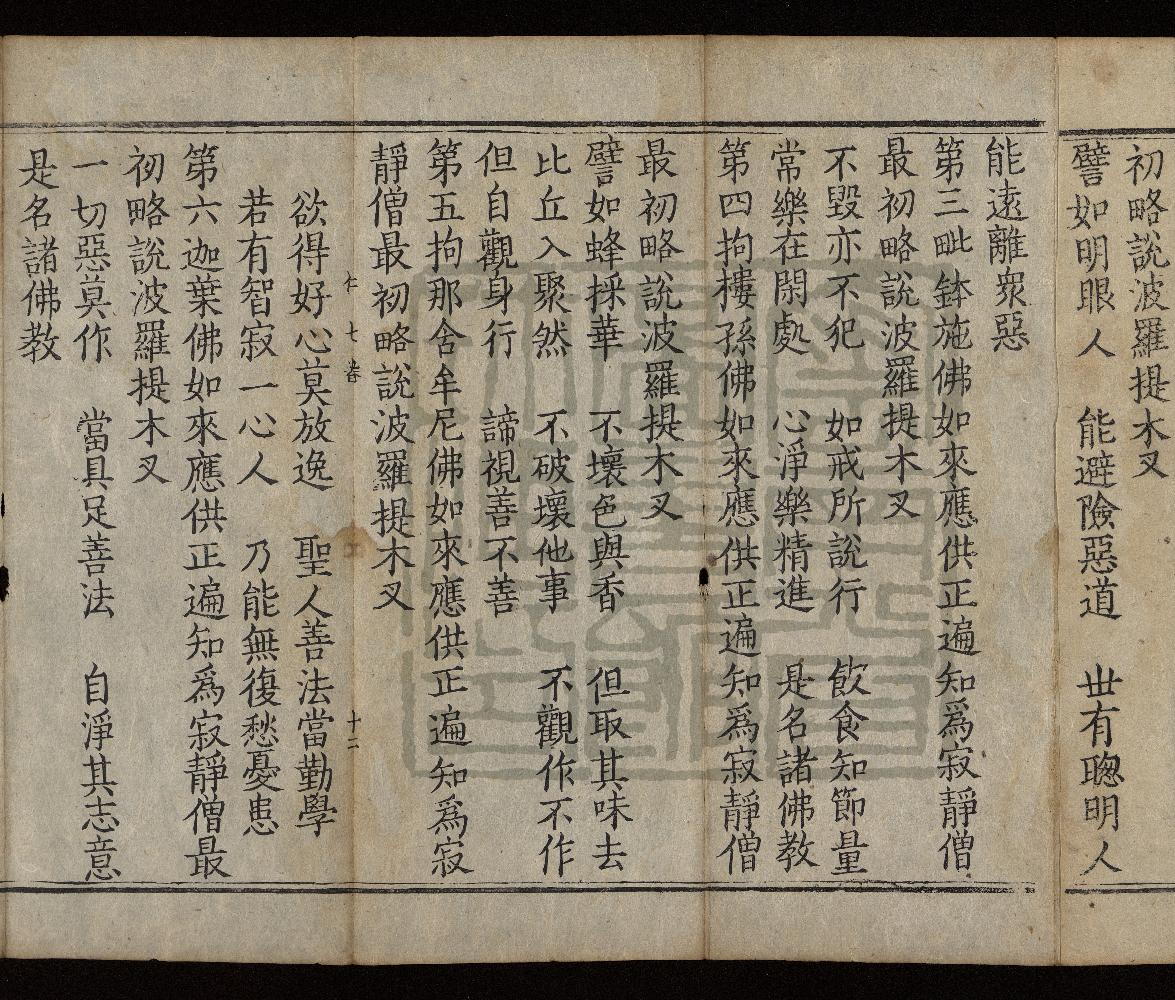 初略說波羅提木叉
譬如明眼人　能避險惡道　世有聰明人
能遠離衆惡
第三毗鉢施佛如來應供正遍知爲寂靜僧
最初略說波羅提木叉
不毀亦不犯　如戒所說行　飲食知節量
常樂在閑處　心淨樂精進　是名諸佛教
第四拘樓孫佛如來應供正遍知爲寂靜僧
最初略說波羅提木叉
譬如蜂採華　不壞色與香　但取其味去
比丘入聚然　不破壞他事　不觀作不作
但自觀身行　諦視善不善
第五拘那舍牟尼佛如來應供正遍知爲寂
靜僧最初略說波羅提木叉
七　十二
欲得好心莫放逸　聖人善法當勤學
若有智寂一心人　乃能無復愁憂患
第六迦葉佛如來應供正遍知爲寂靜僧最
初略說波羅提木叉
一切惡莫作　當具足善法　自淨其志意
是名諸佛教